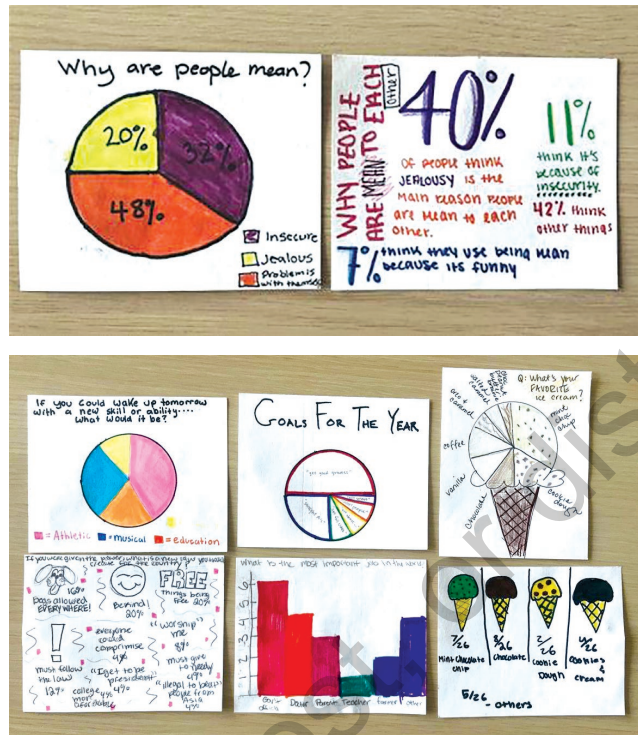 Why are people mean?
20%
32%
48%
Insecure
Jealous
Problem is
with themself
WHY PEOPLE
ARE MEAN TO EACH
other
40%
OF PEOPLE THINK
JEALOUSY IS THE
MAIN REASON PEOPLE
ARE MEAN TO EACH
OTHER.
11%
think it's
because of
insecurity.
42% think
other things
7% think they use being mean
because its funny
If you could wake up tomorrow
with a new skill or ability....
What would it be?
= Athletic
= musical
= education
GOALS FOR THE YEAR
"get good grades"
Q: What's your
FAVORITE
ice cream?
mint
choc
chip
cookie
dough
Chocolate
vanilla
coffee
caramel
If you were given the power, what is a new law you would
create for the country?
16%
Dogs allowed
EVERYWHERE!
Be kind!
20%
FREE
Things being
free 20%
everyone
could
compromise
4%
"worship"
me
8%
must follow
the law
12%
"I get to be
president"
4%
must give
to needy
4%
college
more
affordable
4%
"illegal to bean
people from
Asia
4%
What is the most important job in the world
6
5
4
3
2
1
Doctor
Parents
Teacher
Farmer
other
7/26
Mint Chocolate
chip
3/26
Chocolate
2/26
Cookie
Dough
Cookies
&
cream
5/26
- others